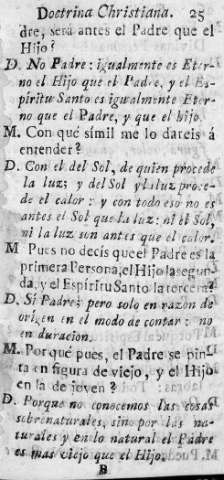 Doctrina Christiana. 25
dre, será antes el Padre que el
Hijo?
D. No Padre: igualmente es Eter-
no el Hijo que el Padre, y el Es-
píritu Santo es igualmente Eter-
no que el Padre, y que el hijo.
M. Con qué símil me lo dareis á
entender?
D. Con el del Sol, de quien procede
la luz; y del Sol y la luz proce-
de el calor: y con todo eso no es
antes el Sol que la luz: ni el Sol,
ni la luz son antes que el calor.
M Pues no decís que el Padre es la
primera Persona, el Hijo la segun-
da, y el Espíritu Santo la tercera?
D. Sí Padre; pero solo en razon de
orígen en el modo de contar: no
en duracion.
M. Por qué pues, el Padre se pin-
ta en figura de viejo, y el Hijo
en la de joven?
D. Porque no conocemos las cosas
sobrenaturales, sino por las na-
turales y en lo natural el Padre
es mas viejo que el Hijo.
B